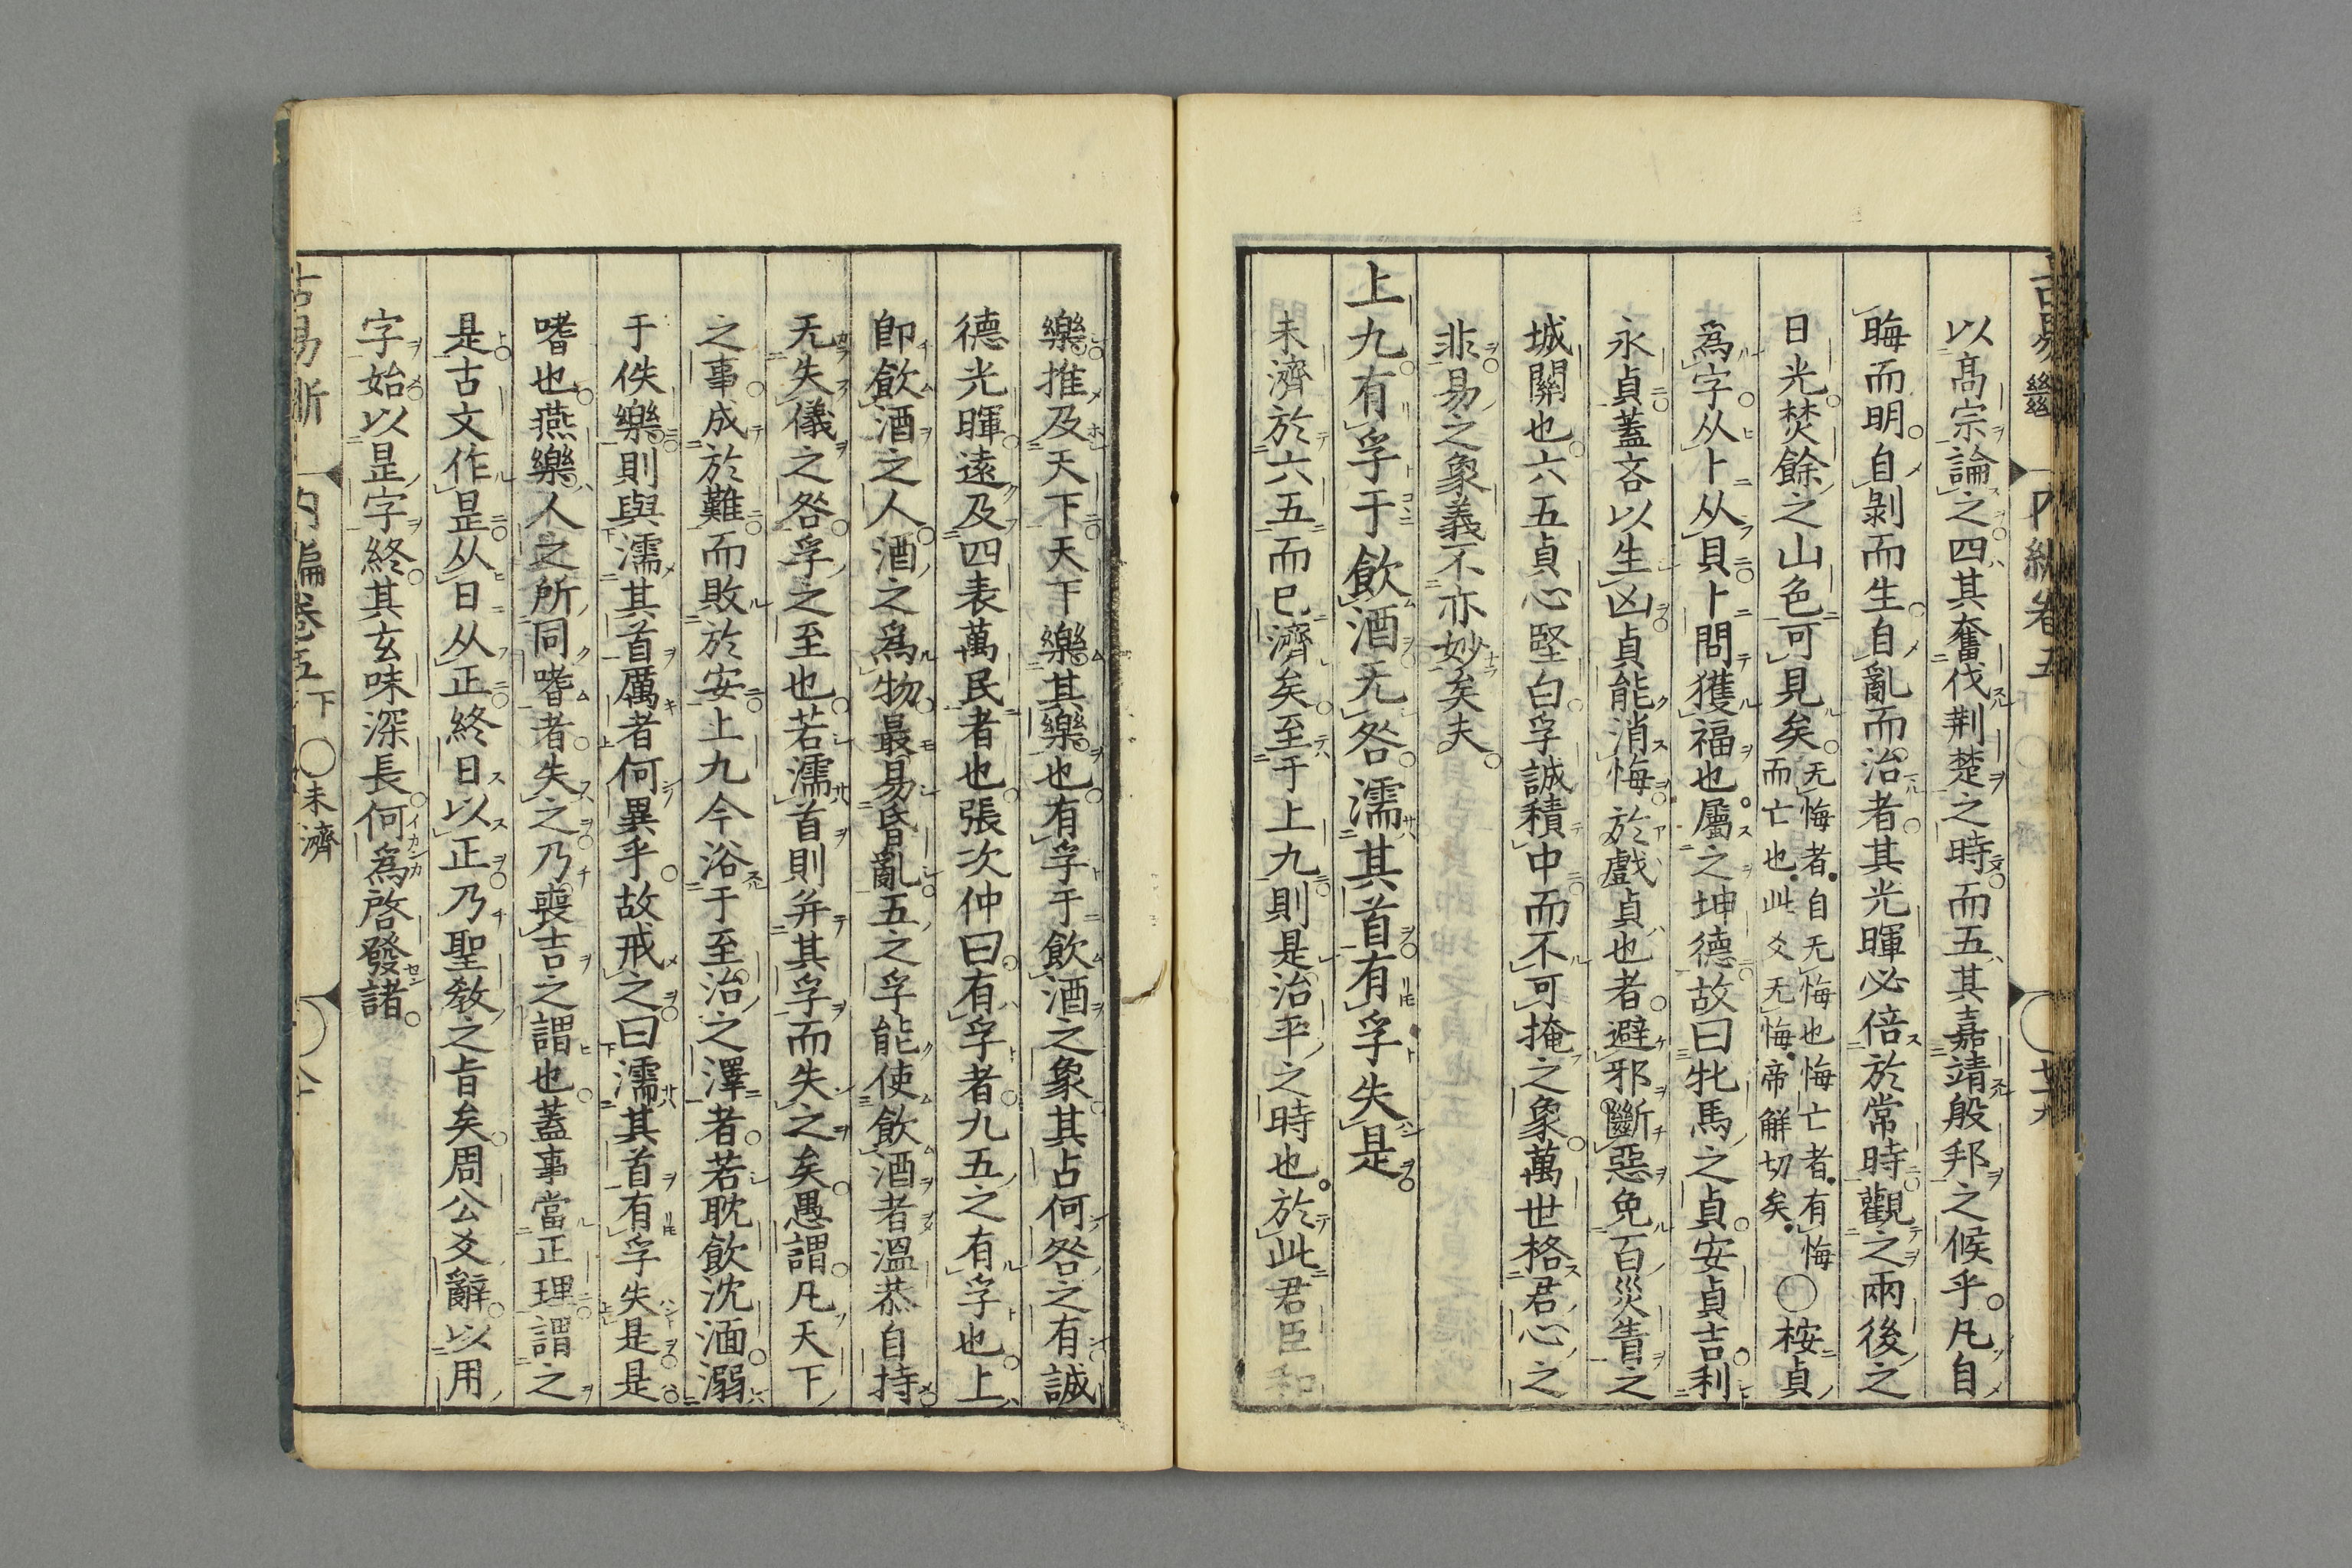 以髙宗論之四其奮伐荆楚之時而五其嘉靖殷邦之候乎凡自
晦而明自剝而生自亂而治者其光暉必倍於常時觀之兩後之
日光焚餘之山色可見矣无悔者自无悔也悔亡者有悔而亡也此爻无悔帝解切矣○桉貞
為字从卜从貝卜問獲福也屬之坤德故曰牝馬之貞安貞吉利
永貞蓋吝以生凶貞能消悔於戲貞也者避邪斷惡免百災眚之
城關也六五貞心堅白孚誠積中而不可掩之象萬世格君心之
非易之象義不亦妙矣夫
上九有孚于飲酒无咎濡其首有孚失是
未濟於六五而已濟矣至于上九則是治平之時也於此君臣和
樂推及天下天下樂其樂也有孚于飲酒之象其占何咎之有誠
德光暉遠及四表萬民者也張次仲曰有孚者九五之有孚也上
卽飲酒之人酒之為物最易昏亂五之孚能使飲酒者溫恭自持
无失儀之咎孚之至也若濡首則并其孚而失之矣愚謂凡天下
之事成於難而敗於安上九今浴于至治之澤者若耽飲沈湎溺
于佚樂則與濡其首厲者何異乎故戒之曰濡其首有孚失是是
嗜也燕樂人之所同嗜者失之乃喪吉之謂也蓋事當正理謂之
是古文作昰从日从正終日以正乃聖教之旨矣周公爻辭以用
字始以昰字終其玄味深長何為啓發諸
古易斷 内編卷五下 ○未濟